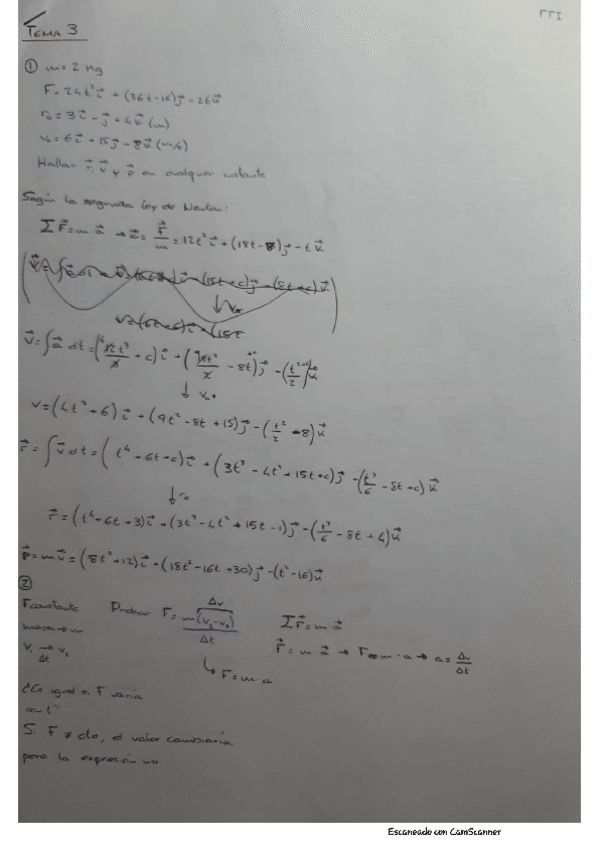 FFI
TEMA 3
① m= 2 kg
F= 24t² i + (36t-16) j - 2t k
r₀= 3i - j + 4k (m)
v₀= 6i + 15j - 8k (m/s)
Hallar r, v y p en cualquier instante
Según la segunda ley de Newton:
Σ F = m·a → a = F/m = 12t² i + (18t-8) j - t k
v = ∫ a dt = (12t³/3 + c) i + (18t²/2 - 8t) j - (t²/2) k
↓ v₀
v = (4t³ + 6) i + (9t² - 8t + 15) j - (t²/2 + 8) k
r = ∫ v dt = (t⁴ - 6t + c) i + (3t³ - 4t² + 15t + c) j - (t³/6 - 8t + c) k
↓ r₀
r = (t⁴ - 6t + 3) i + (3t³ - 4t² + 15t - 1) j - (t³/6 - 8t + 4) k
p = m v = (8t³ + 12) i + (18t² - 16t + 30) j - (t² - 16) k
②
F constante Probar F = m(v₂ - v₁)/Δt Δv Σ F = m·a
masa → m F = m a → F = m·a → a = Δv/Δt
v₁ → v₂ Δt ↳ F = m·a
¿Es igual si F varía
con t?
Si F ≠ cte, el valor cambiaría,
pero la expresión no
Escaneado con CamScanner